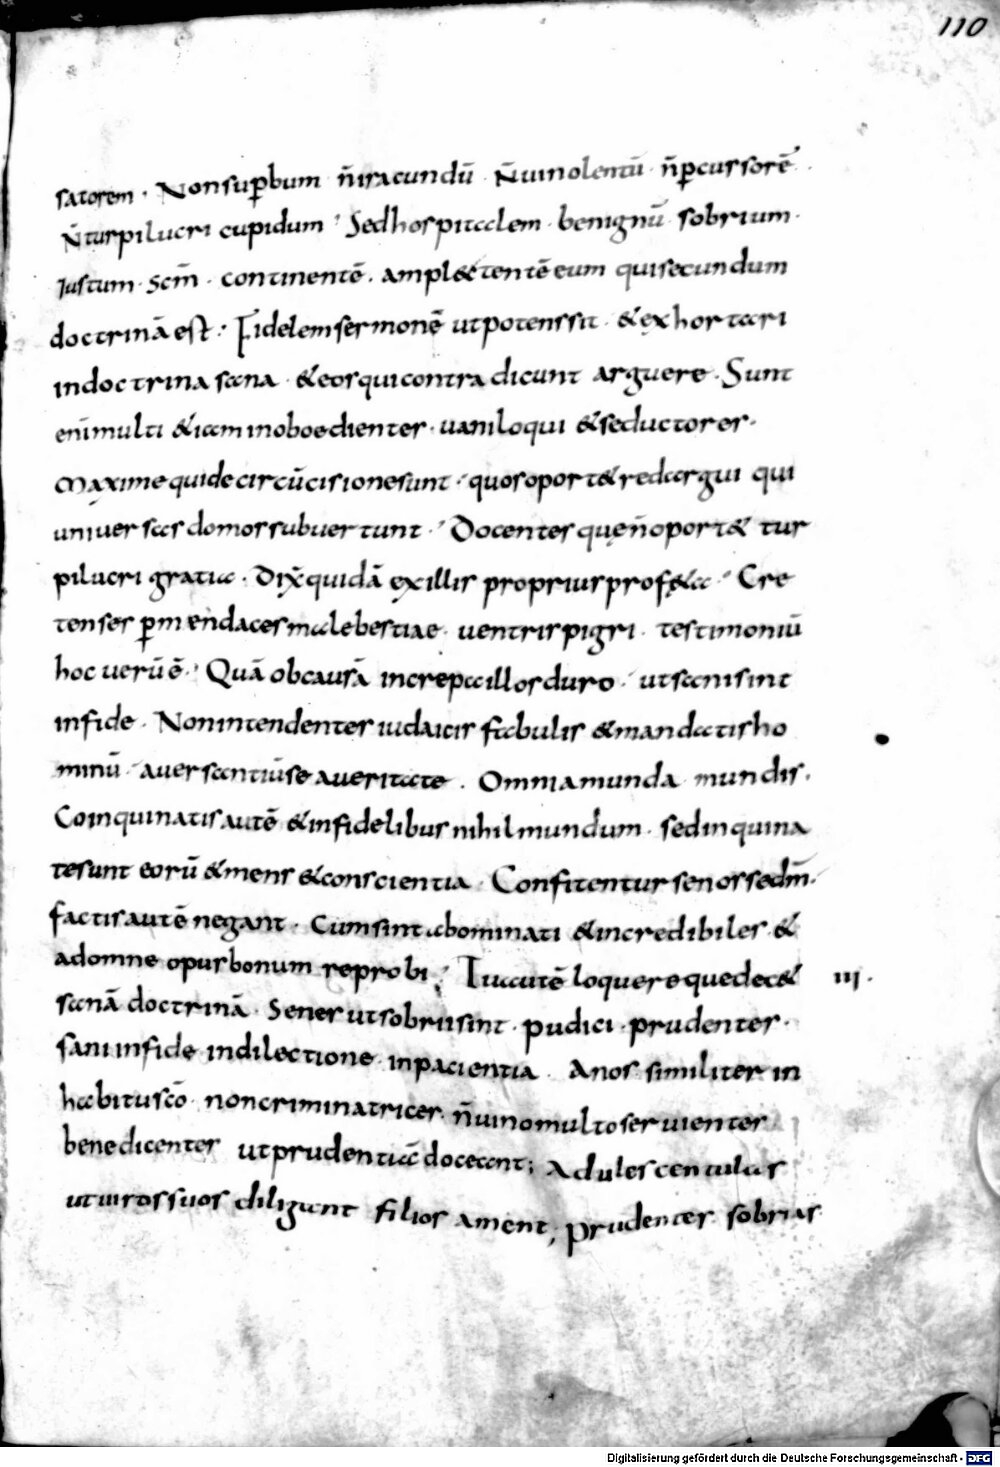 110
satorem · Non sup̱bum n̄iracundū · N̄uinolentū · n̄ p̱cussorē ·
N̄turpilucri cupidum · Sed hospitalem · benignū · sobrium ·
Iustum · scm̄ · continentē · amplectentē eum qui secundum
doctrinā est · Fidelem sermonē ut potens sit · & exhortari
in doctrina sana · & eos qui contradicunt arguere · Sunt
eni multi &iam inoboedientes · uaniloqui & seductores ·
Maxime qui de circūcisione sunt · quos oport& redargui qui
uniuersas domos subuertunt · Docentes quę n̄ oport& tur
pilucri gratia · Dix̄ quidā ex illis proprius prof&a · Cre
tenses sem̱ mendaces malę bestiae · uentris pigri · testimoniū
hoc uerū ē · Quā ob causā increpa illos duro · ut sani sint
in fide · Non intendentes iudaicis fabulis & mandatis ho
minū · auersantiū se a ueritate · Omnia munda mundis ·
Coinquinatis autē & infidelibus nihil mundum · sed inquina
te sunt eorū & mens & conscientia · Confitentur se nosse dm̄ ·
factis autē negant · Cum sint abominati & incredibiles · &
ad omne opus bonum reprobi ; Tu autē loquere que dec& iii ·
sanā doctrinā · Senes ut sobrii sint · pudici · prudentes ·
sani in fide · in dilectione · in pacientia · Anos similiter in
habitu scō · non criminatrices · n̄ uino multo seruientes
benedicentes ut prudentiā doceant ; Adulescentulas
ut uiros suos diligant filios ament ; prudentes · sobrias ·
Digitalisierung gefördert durch die Deutsche Forschungsgemeinschaft · DFG